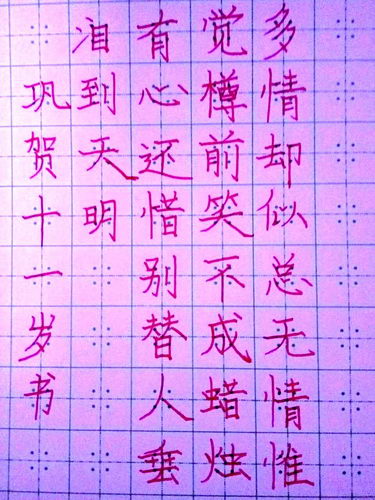 多情却似总无情惟
觉樽前笑不成蜡烛
有心还惜别替人垂
泪到天明
巩贺十一岁书